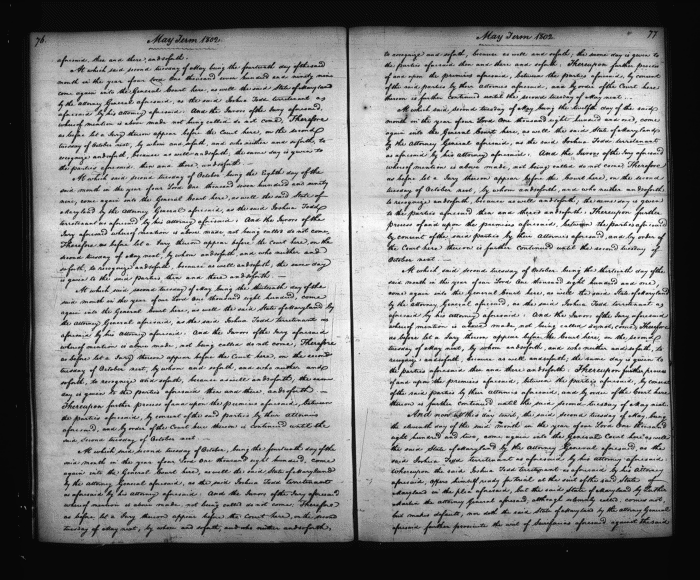 76.
May Term 1802.
aforesaid then and there, andsoforth.
At which said second tuesday of May being the fourteenth day of the said
month in the year of our Lord One thousand seven hundred and ninety nine
come again into the General Court here, as well the said State of Maryland
by the Attorney General aforesaid, as the said Joshua Todd terretenant as
aforesaid by his attorney aforesaid: And the Jurors of the Jury aforesaid,
whereof mention is above made not being called do not come, Therefore
as before let a Jury thereon appear before the Court here, on the second
tuesday of October next, by whom and soforth, and who neither and soforth, to
recognize andsoforth, because as well andsoforth, the same day is given to
the parties aforesaid then and there, andsoforth.
At which said second tuesday of October being the Eighth day of the
said month in the year of our Lord One thousand seven hundred and ninety
nine, come again into the General Court here, as well the said State of
Maryland by the Attorney General aforesaid, as the said Joshua Todd
terretenant as aforesaid by his attorney aforesaid: And the Jurors of the
Jury aforesaid whereof mention is above made not being called do not come,
Therefore as before let a Jury thereon appear before the Court here, on the
second tuesday of May next, by whom andsoforth, and who neither and
soforth, to recognize andsoforth, because as well andsoforth, the same day
is given to the said parties then and there andsoforth.
At which said second tuesday of May being the thirteenth day of the
said month in the year of our Lord One thousand eight hundred, come
again into the General Court here, as well the said State of Maryland by
the Attorney General aforesaid, as the said Joshua Todd terretenant as
aforesaid by his Attorney aforesaid: And the Jurors of the Jury aforesaid
whereof mention is above made, not being called do not come, Therefore
as before let a Jury thereon appear before the Court here, on the second
tuesday of October next, by whom andsoforth, and who neither and
soforth, to recognize and soforth, because as well andsoforth, the same
day is given to the parties aforesaid then and there, andsoforth.
Thereupon further process of and upon the premises aforesaid, between
the parties aforesaid, by consent of the said parties by their attornies
aforesaid, and by order of the Court here thereon is further continued until the
said second tuesday of October next.
At which said second tuesday of October, being the fourteenth day of the
said month in the year of our Lord One thousand eight hundred, come
again into the General Court here, as well the said State of Maryland
by the attorney General aforesaid, as the said Joshua Todd terretenant
as aforesaid by his attorney aforesaid: And the Jurors of the Jury aforesaid
whereof mention is above made, not being called do not come, Therefore
as before let a Jury thereon appear before the Court here, on the second
tuesday of May next, by whom and soforth, and who neither andsoforth,
77
May Term 1802.
to recognize and soforth, because as well and soforth, the same day is given to
the parties aforesaid then and there and soforth. Thereupon further process
of and upon the premises aforesaid, between the parties aforesaid, by consent
of the said parties by their attornies aforesaid, and by order of the Court here
thereon is further continued until the second tuesday of May next.
At which said second tuesday of May being the twelfth day of the said
month in the year of our Lord One thousand eight hundred and one, come
again into the General Court here, as well the said State of Maryland
by the Attorney General aforesaid, as the said Joshua Todd terretenant
as aforesaid by his attorney aforesaid: And the Jurors of the Jury aforesaid
whereof mention is above made, not being called do not come Therefore
as before let a Jury thereon appear before the Court here, on the second
tuesday of October next, by whom andsoforth, and who neither andsoforth,
to recognize andsoforth, because as well andsoforth, the same day is given
to the parties aforesaid then and there andsoforth: Thereupon further
process of and upon the premises aforesaid, between the parties aforesaid
by consent of the said parties by their attornies aforesaid, and by order of
the Court here thereon is further continued until the second tuesday of
October next.
At which said second tuesday of October being the thirteenth day of the
said month in the year of our Lord One thousand eight hundred and one,
come again into the General Court here, as well the said State of Maryland
by the Attorney General aforesaid, as the said Joshua Todd terretenant as
aforesaid by his attorney aforesaid: And the Jurors of the Jury aforesaid
whereof mention is above made, not being called do not come, Therefore
as before let a Jury thereon appear before the Court here, on the second
tuesday of May next, by whom andsoforth, and who neither andsoforth, to
recognize andsoforth, because as well andsoforth, the same day is given to
the parties aforesaid then and there andsoforth. Thereupon further process
of and upon the premises aforesaid, between the parties aforesaid, by consent
of the said parties by their attornies aforesaid, and by order of the Court here
thereon is further continued until the said second tuesday of May next.
And now at this day, to wit, the said second tuesday of May, being
the eleventh day of the said month in the year of our Lord One thousand
eight hundred and two, come again into the General Court here as well
the said State of Maryland by the Attorney General aforesaid, as the
said Joshua Todd terretenant as aforesaid by his attorney aforesaid,
whereupon the said Joshua Todd terretenant as aforesaid by his attorney
aforesaid, offers himself ready for trial at the suit of the said State of
Maryland on the plea aforesaid, but the said State of Maryland by Luther
Martin the Attorney General aforesaid, although solemnly called, comes not,
but makes default, nor doth the said State of Maryland by the Attorney General
aforesaid further prosecute the writ of Scirefacias aforesaid against the said